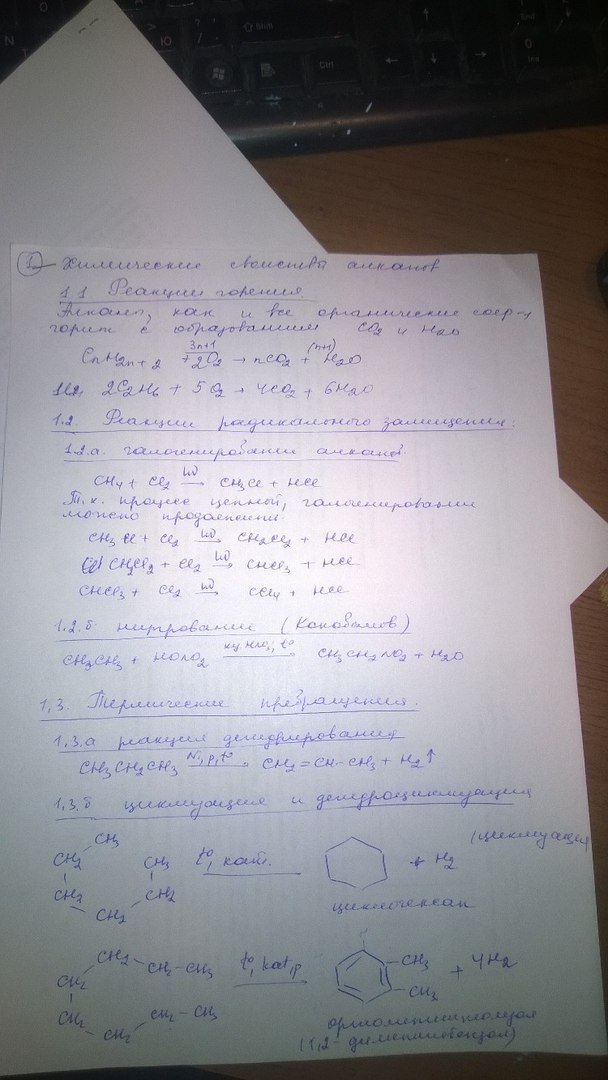 1 Химические свойства алканов
1.1 Реакции горения
Алканы, как и все органические соед-я
горит с образованием CO2 и H2O
CnH2n+2 + 3n+1/2 O2 → nCO2 + (n+1) H2O
2C2H6 + 5O2 → 4CO2 + 6H2O
1.2. Реакции радикального замещения.
1.2.а. галогенировании алканов
CH4 + Cl2 hυ→ CH3Cl + HCl
Т.к. процесс цепной, галогенировании
можно продолжить.
CH3Cl + Cl2 hυ→ CH2Cl2 + HCl
CH2Cl2 + Cl2 hυ→ CHCl3 + HCl
CHCl3 + Cl2 hυ→ CCl4 + HCl
1.2.б нитрование (Коновалов)
CH3CH3 + HONO2 кц HNO3, t° → CH3CH2NO2 + H2O
1.3. Термические превращения.
1.3.а реакция дегидрирования
CH3CH2CH3 Ni, p, t° → CH2=CH-CH3 + H2↑
1.3.б циклизация и дегидроциклизация
(циклизация
CH3
CH2 CH3 t°, кат. + H2
CH2 CH2
CH2
циклогексан
CH2 CH2-CH3 t°, kat, p CH3 + 4H2
CH2
CH2 CH2 CH2-CH3 CH3
(1,2-диметилбензол)